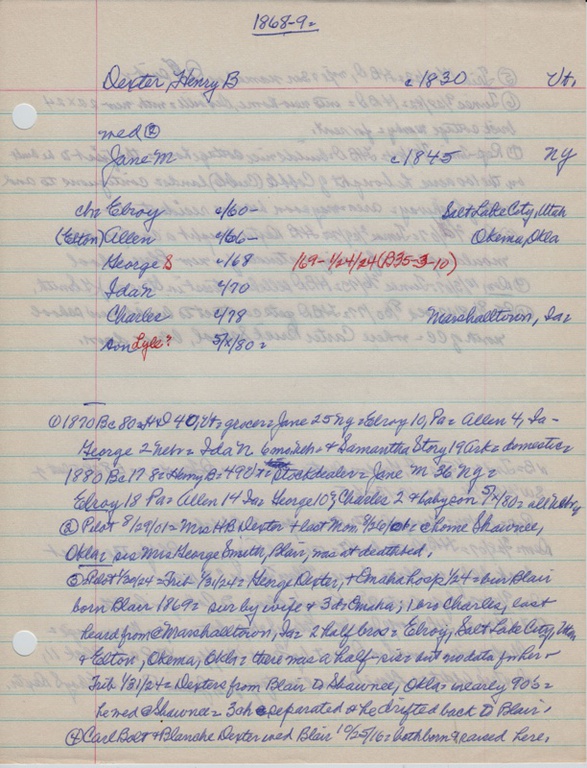 1868-9=
Dexter, Henry B c1830 Vt,
med ②
Jane M c1845 NY
ch= Elroy c/60- Salt Lake City, Utah
(Elton) Allen c/66- Okema, Okla
George S c/68 /69-1/24/24 (B35-3-10)
Ida N c/70
Charles c/78 Marshalltown, Ia=
son Lyle? 5/x/80=
① 1870 Bc 80= H D 40, Vt= grocer= Jane 25 Ny= Elroy 10, Pa= Allen 4, Ia-
George 2 Neb= Ida N 6 mo Neb= + Samantha Story 19 Ark= domestic=
1880 Bc 17 8= Henry B= 49 Vt= Stockdealer= Jane M 36 Ny=
Elroy 18 Pa= Allen 14 Ia= George 10, Charles 2 + baby son 5/x/80= all Neb
② Pilot 8/29/01= Mrs HB Dexter + last Mon 8/26/01= @ home Shawnee,
Okla= sis Mrs George Smith, Blair, was at deathbed,
③ Pilot 1/30/24= Trib 1/31/24= George Dexter, + Omaha hosp 1/24= bur Blair
born Blair 1869= sur by wife + 3 ds Omaha; 1 bro Charles, last
heard from @ Marshalltown, Ia= 2 half bros= Elroy, Salt Lake City, Utah
+ Elton, Okema, Okla= there was a half-sis= but no data for her-
Trib 1/31/24= Dexters from Blair to Shawnee, Okla= in early 90's=
he wed @ Shawnee= 3 ch= separated + he drifted back to Blair,
④ Carl Bolt + Blanche Dexter wed Blair 10/25/16= both born + raised here,